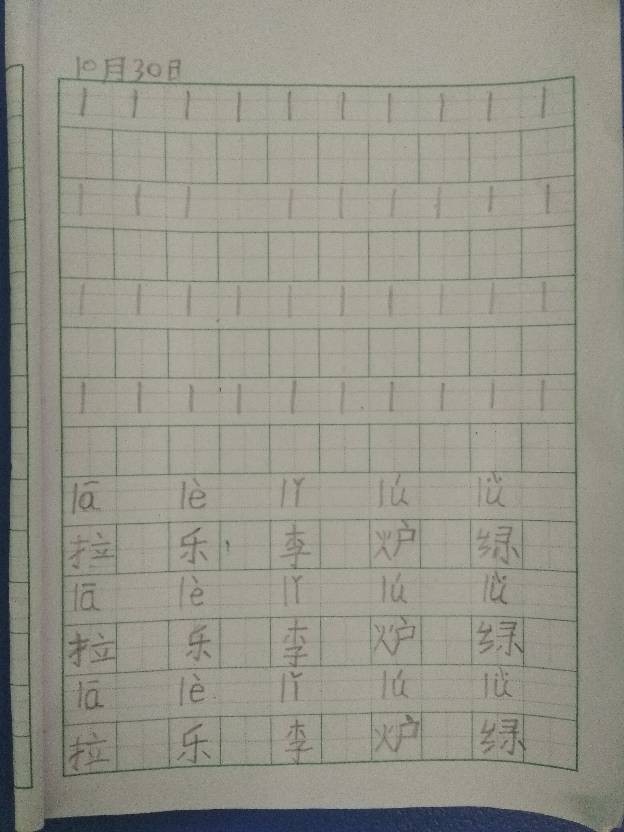 10月30日
l l l l l l l l l l
l l l l l l l l l
l l l l l l l l l l
l l l l l l l l l l
lā lè lǐ lú lǜ
拉 乐 李 炉 绿
lā lè lǐ lú lǜ
拉 乐 李 炉 绿
lā lè lǐ lú lǜ
拉 乐 李 炉 绿